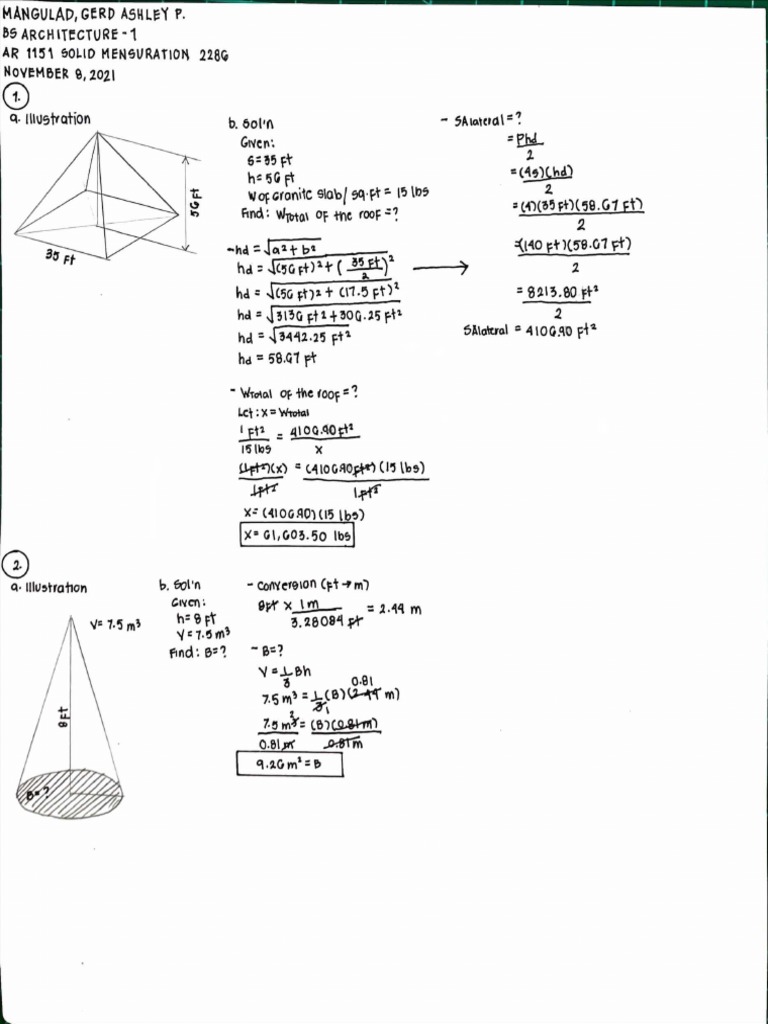 MANGULAD, GERD ASHLEY P.
BS ARCHITECTURE - 1
AR 1151 SOLID MENSURATION 228G
NOVEMBER 8, 2021
1.
a. Illustration
56 Ft
35 Ft
b. Sol'n
Given:
s = 35 Ft
h = 56 Ft
W of Granite slab/sq.ft = 15 lbs
Find: Wtotal of the roof = ?
- hd = √a² + b²
hd = √(56 ft)² + (35 ft/2)²
hd = √(56 ft)² + (17.5 ft)²
hd = √3136 ft² + 306.25 ft²
hd = √3442.25 ft²
hd = 58.67 ft
- SAlateral = ?
= Phd/2
= (4s)(hd)/2
= (4)(35 ft)(58.67 ft)/2
= (140 ft)(58.67 ft)/2
= 8213.80 ft²/2
SAlateral = 4106.90 ft²
- Wtotal of the roof = ?
Let: x = Wtotal
1 ft²/15 lbs = 4106.90 ft²/x
(1 ft²)(x)/1 ft² = (4106.90 ft²)(15 lbs)/1 ft²
x = (4106.90)(15 lbs)
x = 61,603.50 lbs
2.
a. Illustration
V = 7.5 m³
8 Ft
B = ?
b. Sol'n
Given:
h = 8 ft
V = 7.5 m³
Find: B = ?
- Conversion (ft → m)
8 ft x 1 m/3.28084 ft = 2.44 m
- B = ?
V = 1/3 Bh
0.81
7.5 m³ = 1/3 (B)(2.44 m)
1
7.5 m³/0.81 m = (B)(0.81 m)/0.81 m
2
9.26 m² = B